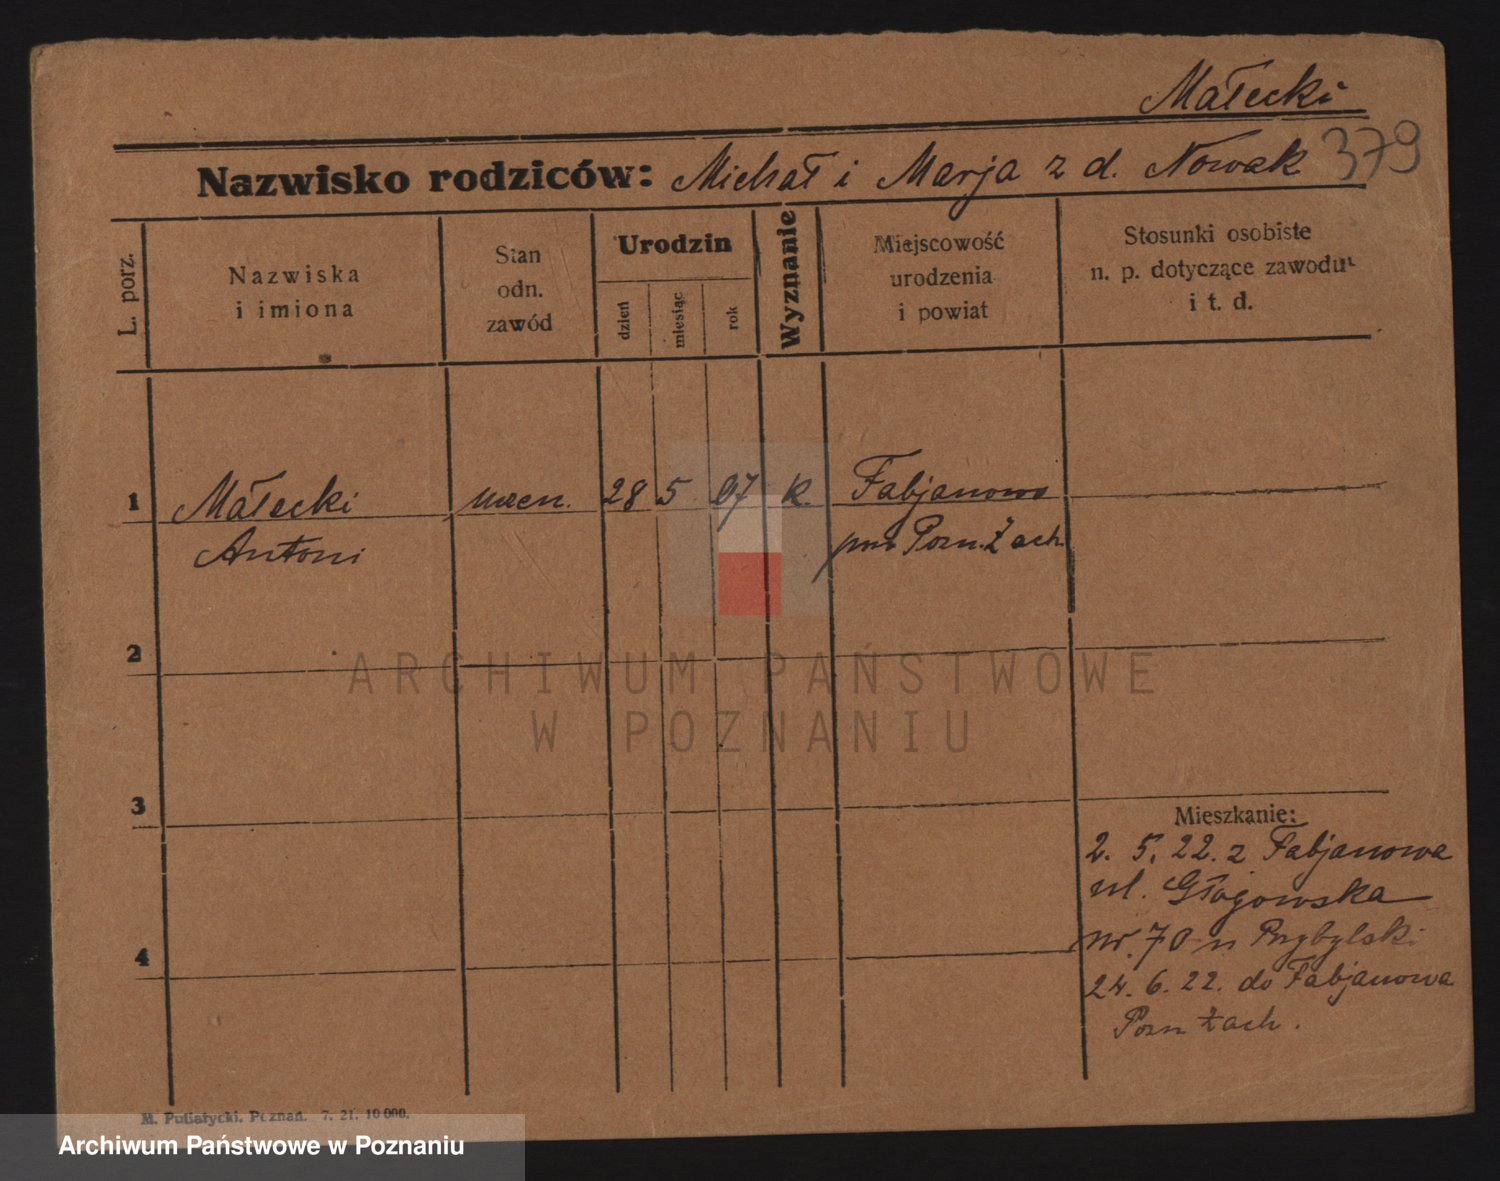 Małecki
Nazwisko rodziców: Michał i Marja z d. Nowak 379
L. porz.
Nazwiska
i imiona
Stan
odn.
zawód
Urodzin
dzień
miesiąc
rok
Wyznanie
Miejscowość
urodzenia
i powiat
Stosunki osobiste
n. p. dotyczące zawodu
i t. d.
1 Małecki uczen. 28 5 07 k. Fabjanowo
Antoni pow Pozn. Zach.
2
ARCHIWUM PAŃSTWOWE
W POZNANIU
3
Mieszkanie:
2. 5. 22. z Fabjanowa
ul. Głogowska
4 nr. 70 u Przybylski
24. 6. 22. do Fabjanowa
Pozn Zach.
M. Putiatycki, Poznań. 7. 21. 10 000.
Archiwum Państwowe w Poznaniu